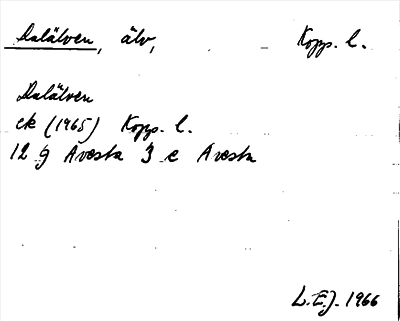 Dalälven, älv, Kopp. l.
Dalälven
ek (1965) Kopp. l.
12 g Avesta 3 c Avesta
L.E.J. 1966